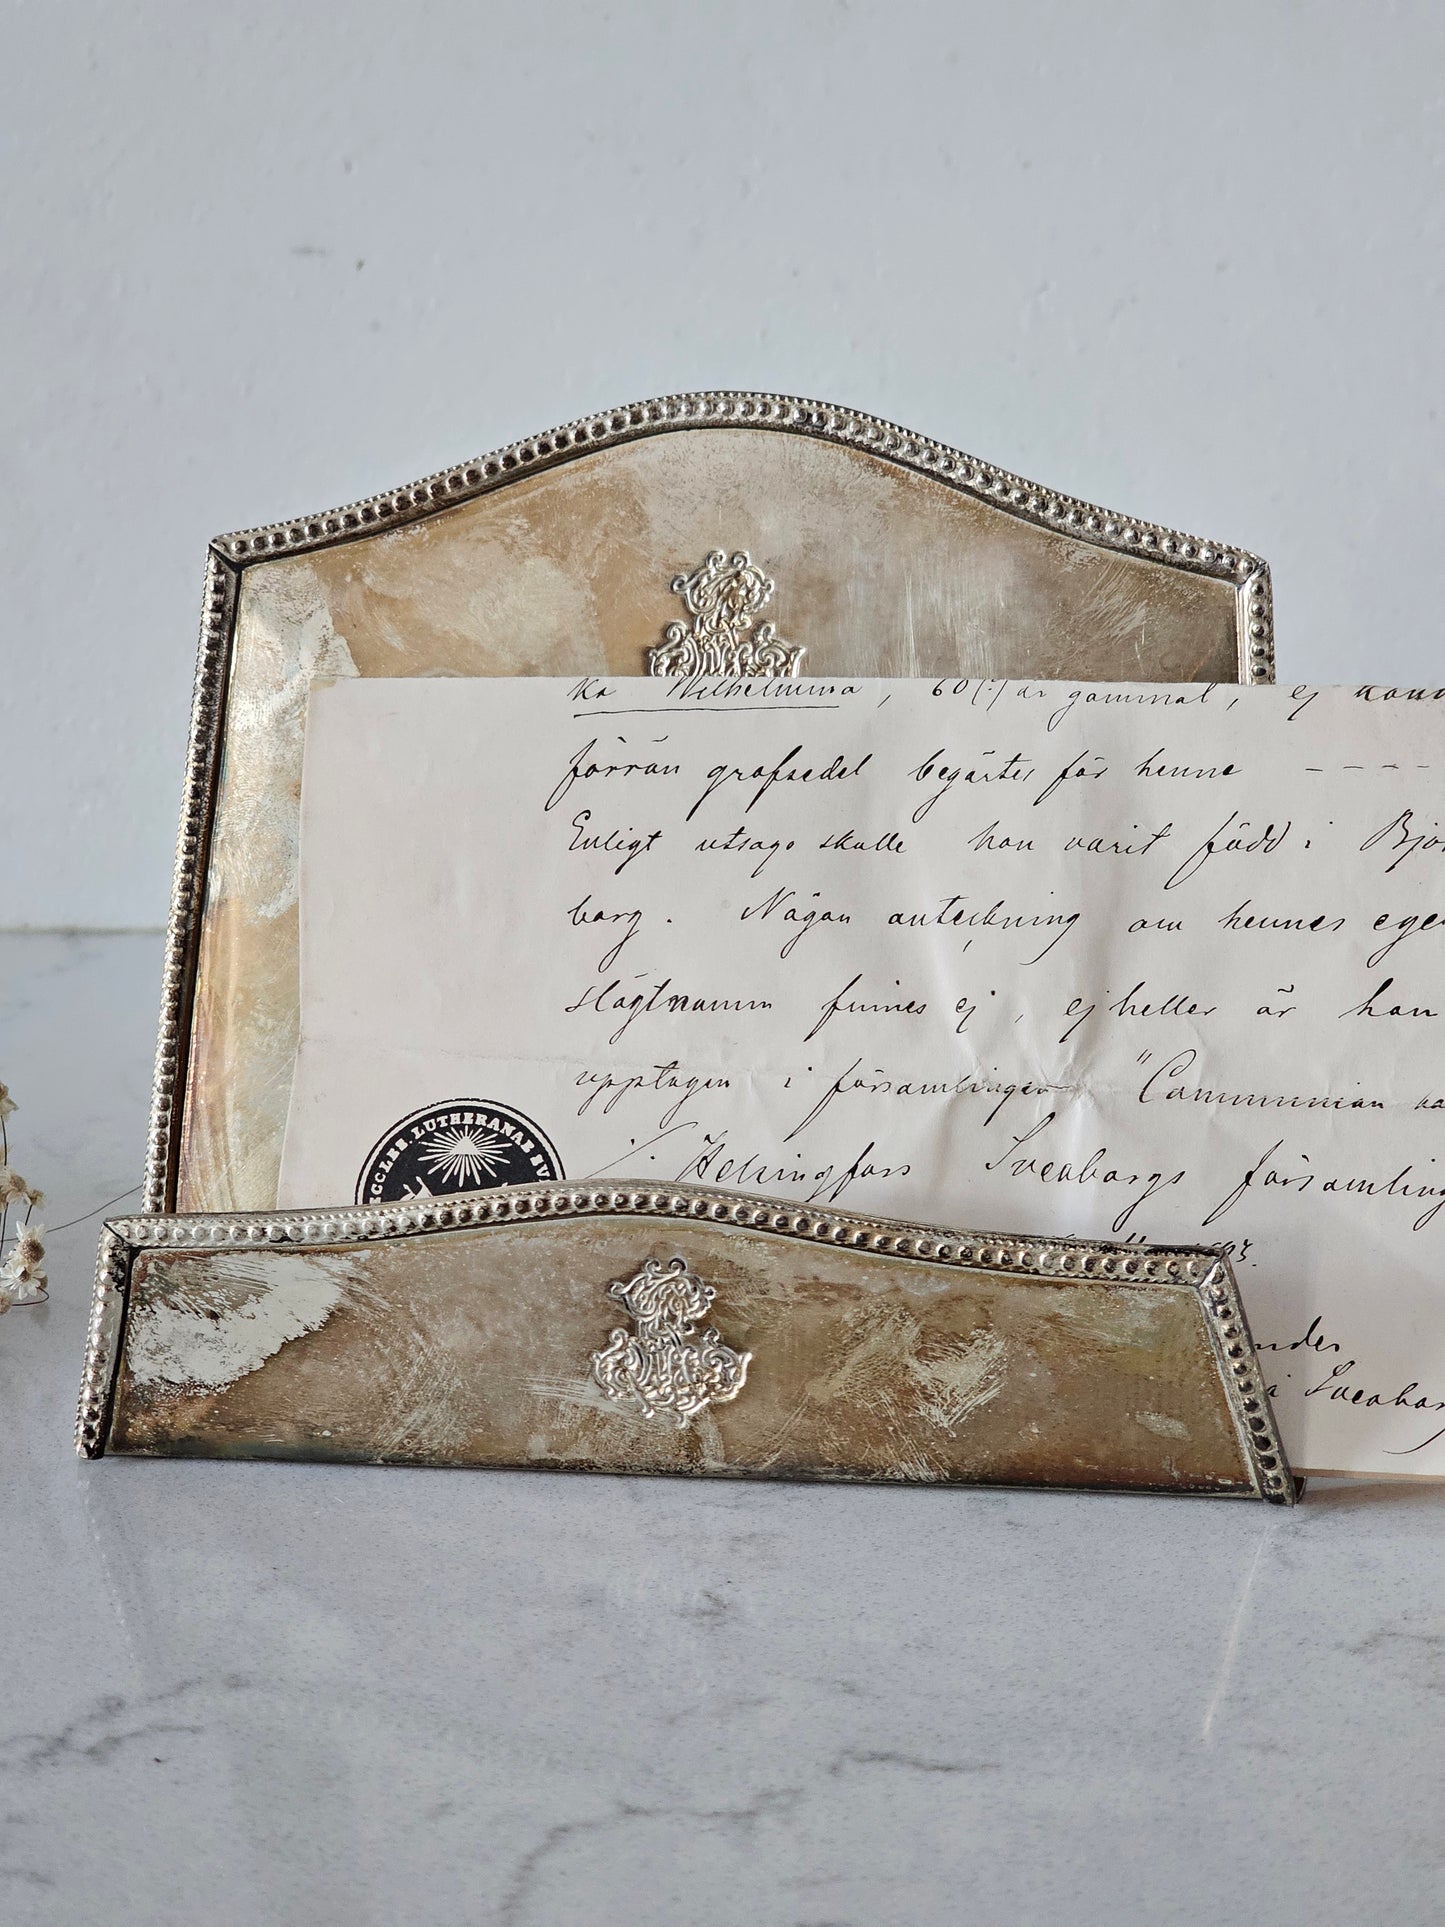 ka Wilhelmina, 60(?) år gammal, ej känd
förrän grafsedel begärtes för henne - - - -
Enligt utsago skulle hon varit född i Bjor
borg. Någon anteckning om hennes ege
slägtnamn finnes ej, ej heller är hon
upptagen i församlingen "Communion
ECCLES. LUTHERANAE EV
Helsingfors Sveaborgs församling
93.
ndes
i Sveabor